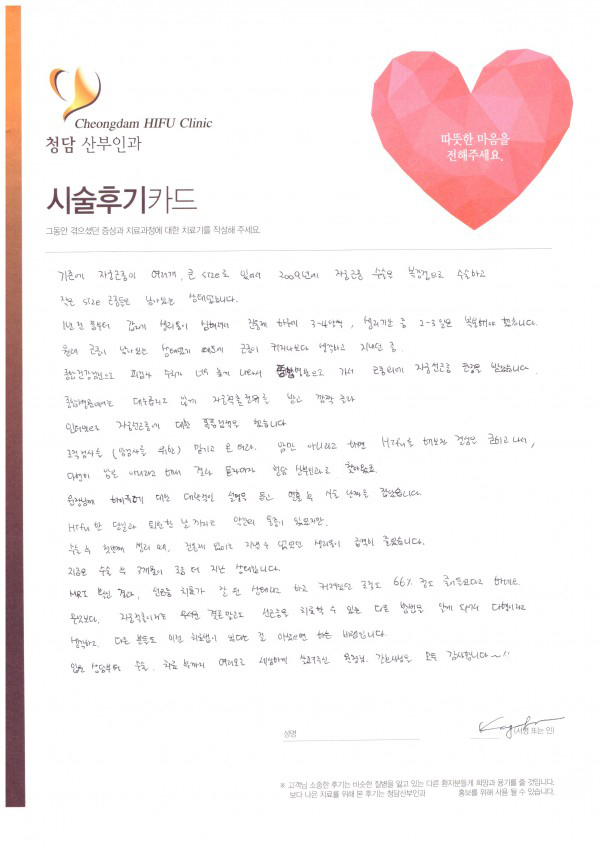 Cheongdam HIFU Clinic
청담 산부인과
따뜻한 마음을
전해주세요.
시술후기카드
그동안 겪으셨던 증상과 치료과정에 대한 치료기를 작성해 주세요.
기존에 자궁근종이 여러개, 큰 size로 있어서 2009년에 자궁근종 수술은 복강경으로 수술하고
작은 size 근종들은 남아있는 상태였습니다.
1년 전 쯤부터 갑자기 생리통이 심해져서 진통제 하루에 3~4알씩, 생리기간 중 2~3일은 복용해야 했습니다.
원래 근종이 남아있는 상태였기 때문에 근종이 커지나보다 생각하고 지내던 중
종합건강검진으로 피검사 수치가 나와서 종합병원으로 가서 근종외에 자궁선근증 판정을 받았습니다.
종합병원에서는 대수롭지 않게 자궁적출 권유를 받고 깜짝 놀라
인터넷으로 자궁선근증에 대한 폭풍검색을 했습니다
조직검사를 (암검사를 위한) 맡기고 온 터라. 암만 아니라고 하면 Hifu를 해보잔 결심은 굳히고 나서,
다행히 암은 아니라고 해서 결과 듣자마자 청담 산부인과로 찾아왔죠.
원장님께 하이푸에 대한 대략적인 설명을 듣고 면담 후 시술 날짜를 잡았습니다.
Hifu 한 당일과 퇴원한 날까지고 약간의 통증이 있었지만.
수술 후 첫번째 생리 때, 진통제 없이는 지낼 수 없었던 생리통이 급격히 줄었습니다.
지금은 수술 후 3개월이 조금 더 지난 상태입니다.
MRI 확인 결과, 선근증 치료가 잘 된 상태라고 하고 커져있던 근종도 66% 정도 줄어들었다고 하네요.
무엇보다. 자궁적출이라는 무서운 결론 말고도 선근증을 치료할 수 있는 다른 방법을 알게 되어서 다행이라고
생각하고. 다른 분들도 이런 치료법이 있다는 걸 아셨으면 하는 바램입니다.
입원 상담부터 수술, 치료 후까지 여러모로 세심하게 신경써주신 원장님, 간호사님들 모두 감사합니다~!!
성명
(서명 또는 인)
※ 고객님 소중한 후기는 비슷한 질병을 앓고 있는 다른 환자분들께 희망과 용기를 줄 것입니다.
보다 나은 치료를 위해 본 후기는 청담산부인과 홍보를 위해 사용 될 수 있습니다.